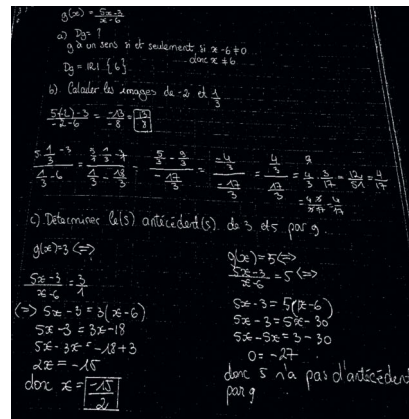 g(x) = (5x-3)/(x-6)
a) Dg = ?
g a un sens si et seulement si x-6≠0
donc x≠6
Dg = IR \ {6}
b) Calculer les images de -2 et 1/3
(5(-2)-3)/(-2-6) = -13/-8 = 13/8
= (5/3 - 9/3)/(-17/3) = (-4/3)/(-17/3) = (4/3)/(17/3) = 4/3 · 3/17 = 12/51 = 4/17
c) Déterminer le(s) antécédent(s) de 3 et 5 par g.
g(x)=3 <=>
(5x-3)/(x-6) = 3/1
(=) 5x-3 = 3(x-6)
5x-3 = 3x-18
5x-3x = -18+3
2x = -15
donc x = -15/2
g(x)=5 <=>
(5x-3)/(x-6) = 5 <=>
5x-3 = 5(x-6)
5x-3 = 5x-30
5x-5x = 3-30
0 = -27
donc 5 n'a pas d'antécédent
par g